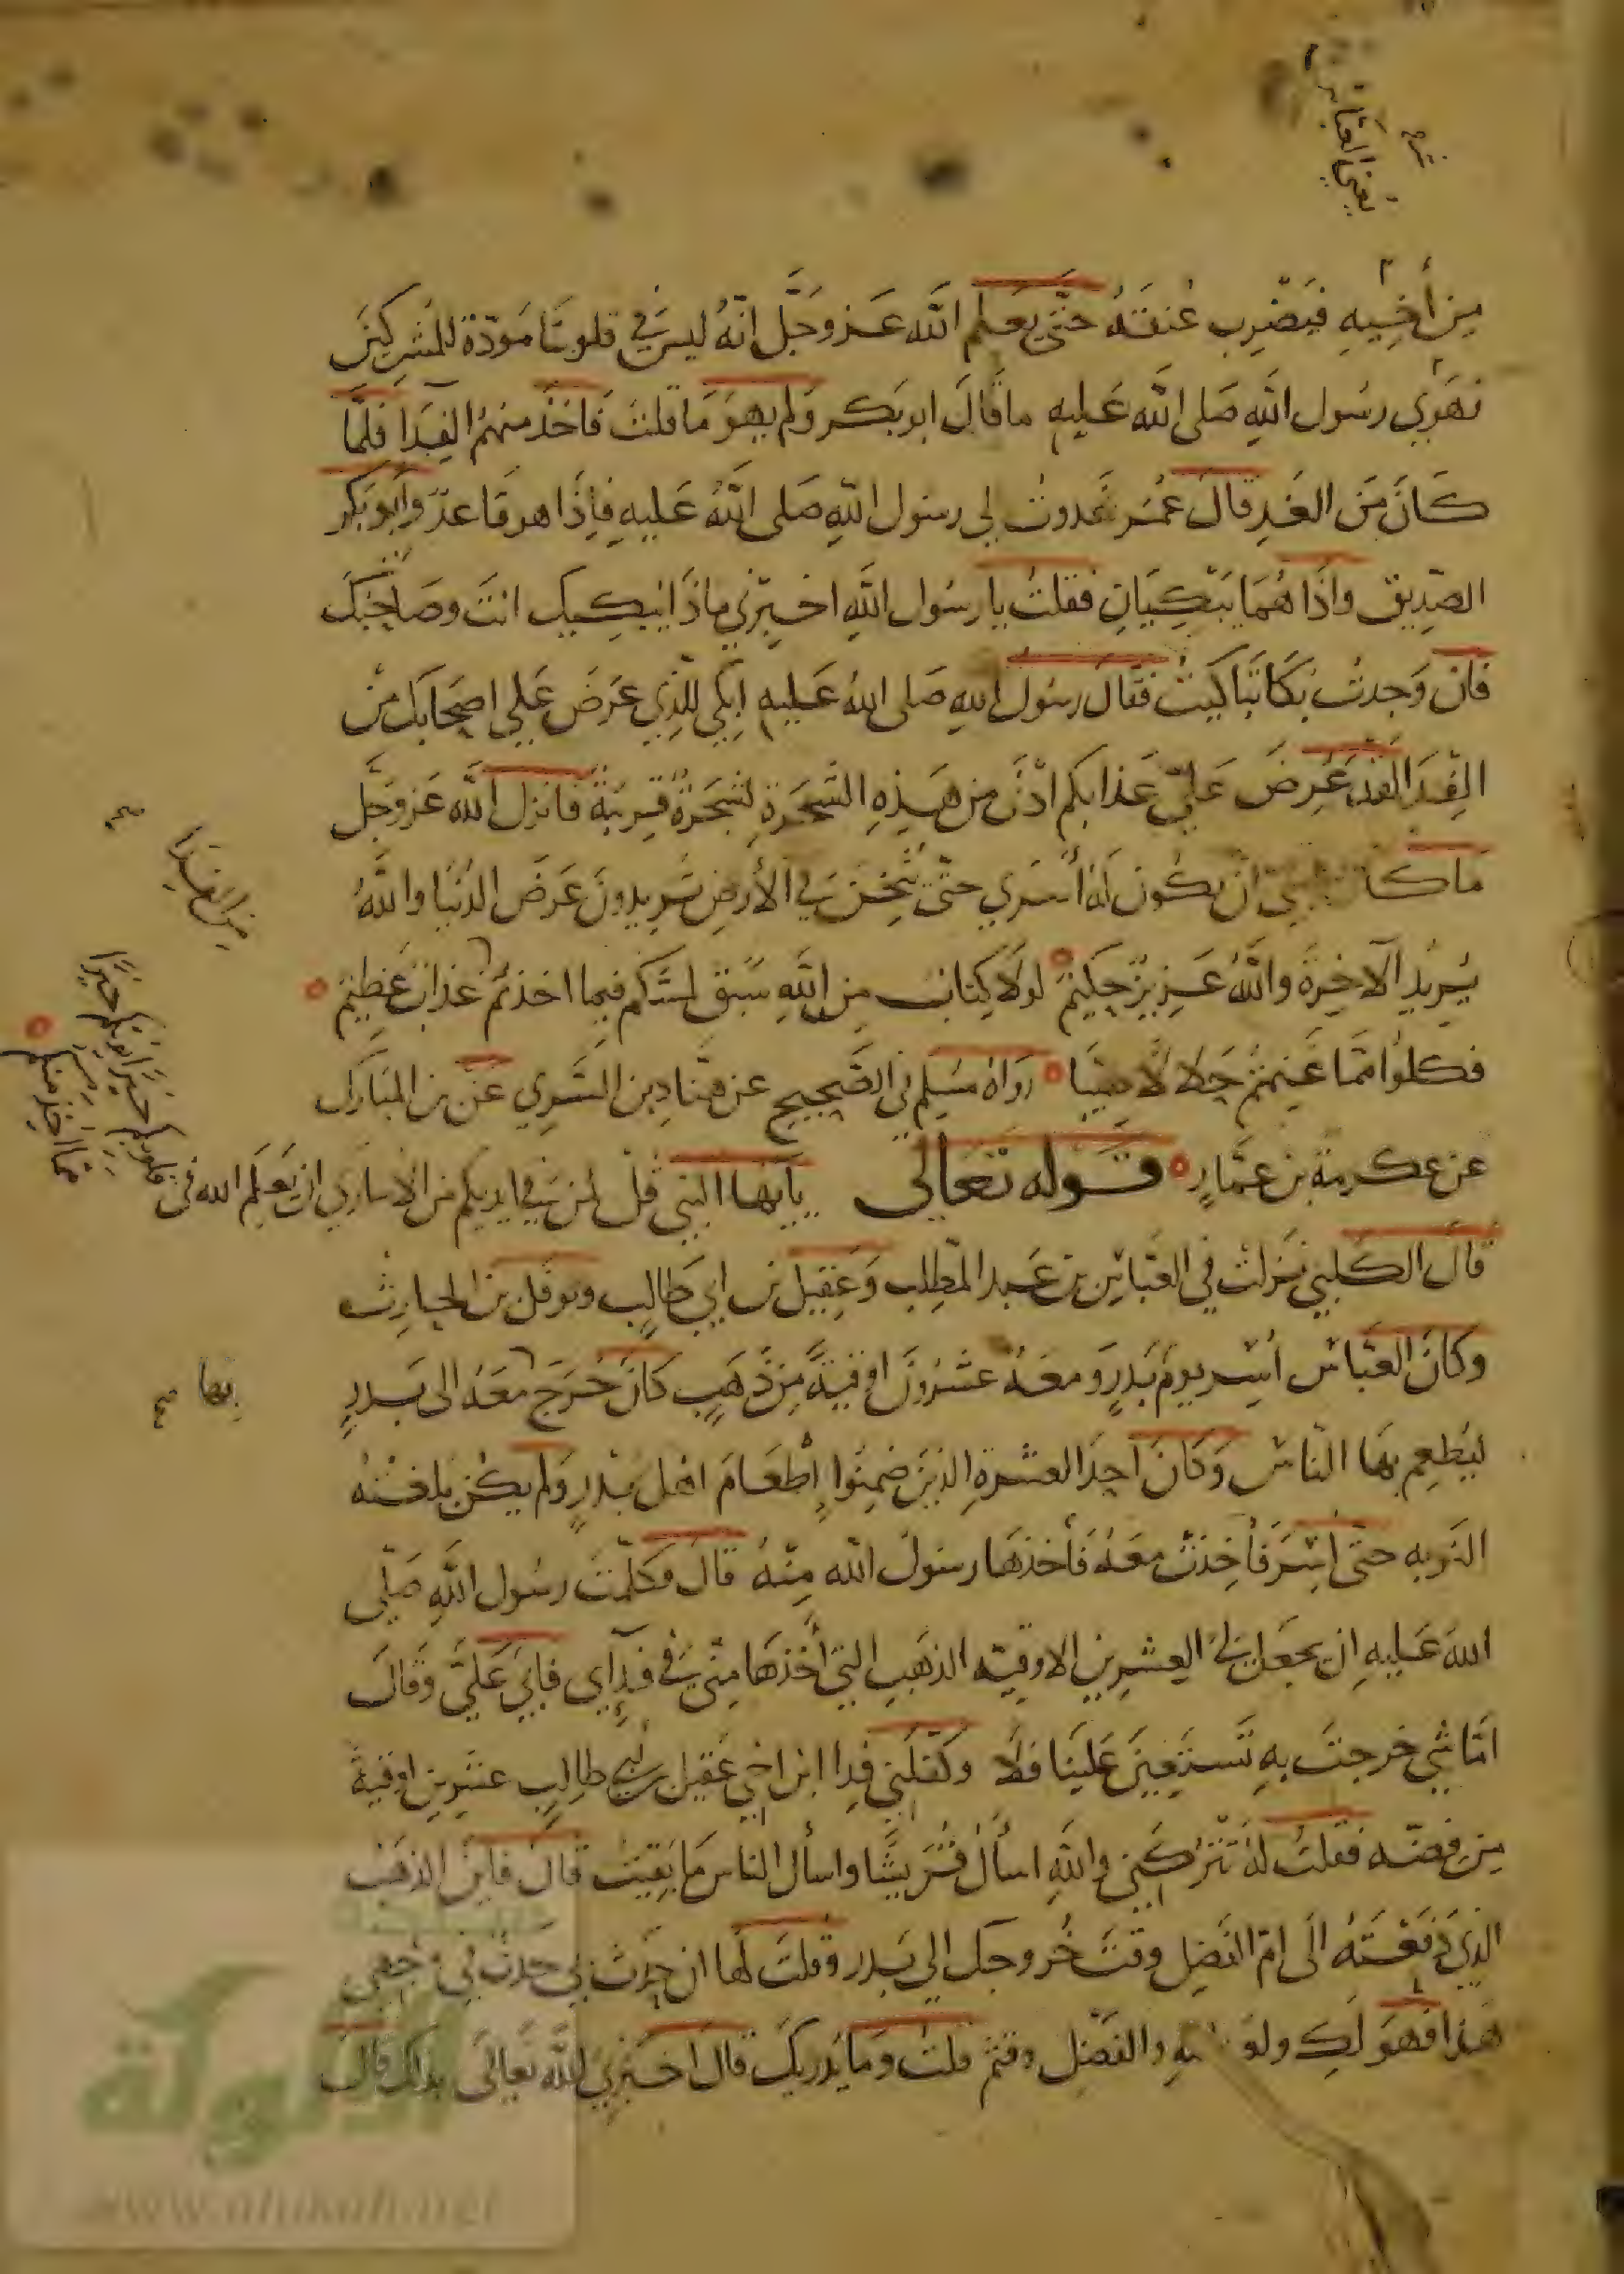 يعني العباس
من أخيه فيضرب عنقه حتى يعلم الله عز وجل انه ليس في قلوبنا مودة للمشركين
فهوي رسول الله صلى الله عليه ما قال ابو بكر ولم يهو ما قلت فاخذ منهم الفدا فلما
كان من الغد قال عمر غدوت الي رسول الله صلى الله عليه فاذا هو قاعد وابو بكر
الصديق واذا هما يبكيان فقلت يا رسول الله اخبرني ماذا يبكيك انت وصاحبك
فان وجدت بكا تباكيت فقال رسول الله صلى الله عليه ابكي للذي عرض علي اصحابك من
الفدا لقد عرض علي عذابكم ادنى من هذه الشجرة لشجرة قريبة فانزل الله عز وجل
من الفدا
صح
ما كان لنبي ان يكون له أسري حتى يثخن في الأرض تريدون عرض الدنيا والله
يريد الآخرة والله عزيز حكيم لولا كتاب من الله سبق لمسكم فيما اخذتم عذاب عظيم
فكلوا مما غنمتم حلالا طيبا رواه مسلم في الصحيح عن هناد بن السري عن بن المبارك
عن عكرمة بن عمار قوله تعالى يا ايها النبي قل لمن في ايديكم من الاساري ان يعلم الله في
قلوبكم خيرا يوتكم خيرا
مما اخذ منكم
قال الكلبي نزلت في العباس بن عبد المطلب وعقيل بن ابي طالب ونوفل بن الحارث
وكان العباس أسر يوم بدر ومعه عشرون اوقية من ذهب كان خرج معه الى بدر
بها صح
ليطعم بها الناس وكان احد العشرة الذين ضمنوا إطعام اهل بدر ولم يكن بلغته
النوبه حتى أسر فأخذت معه فأخذها رسول الله منه قال فكلمت رسول الله صلى
الله عليه ان يجعل لي العشرين الاوقيه الذهب التي أخذها مني في فدآي فابي علي وقال
امّا شي خرجت به تستعين علينا فلا وكفلني فدا ابن اخي عقيل بن ابي طالب عشرين اوقية
من فضه فقلت له تتركني والله اسأل قريشا واسأل الناس ما بقيت قال فاين الذهب
الذي دفعته الى ام الفضل وقت خروجك الي بدر وقلت لها ان حدث بي حدث في وجهي
هذا فهو لك ولعبد الله والفضل وقثم قلت وما يدريك قال اخبرني الله تعالى بذلك قال
الألوكة
www.alukah.net